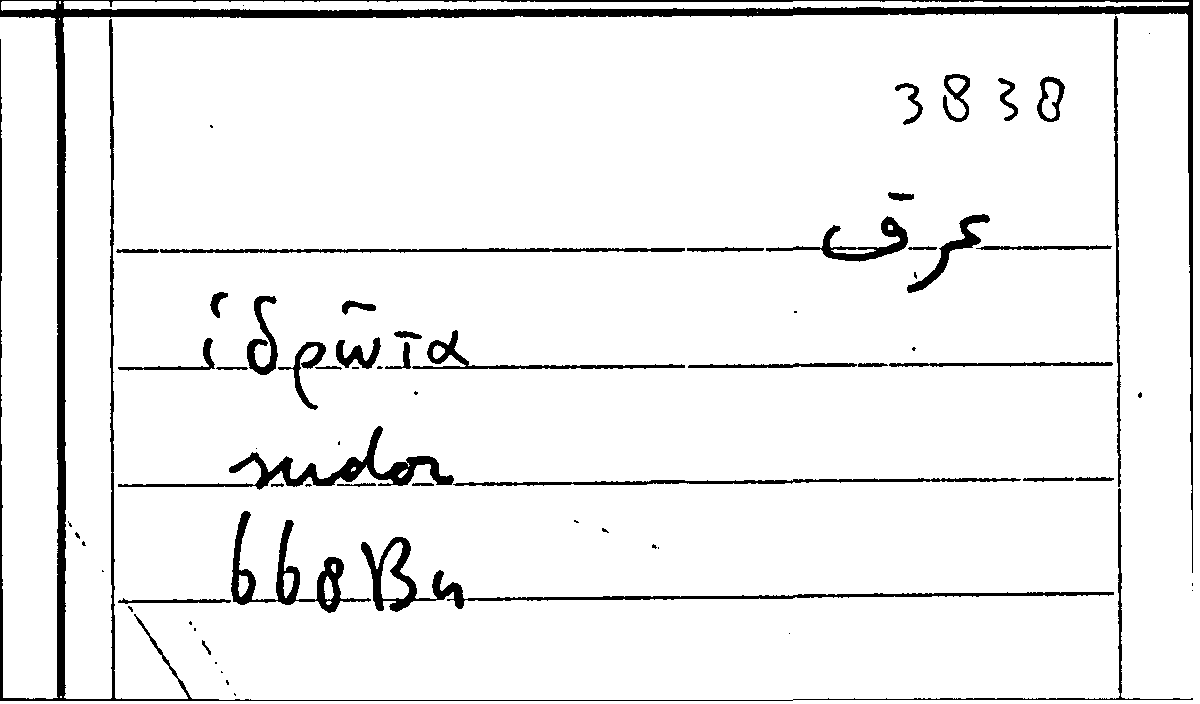 3838
عرق
ἱδρῶτα
sudor
668B4